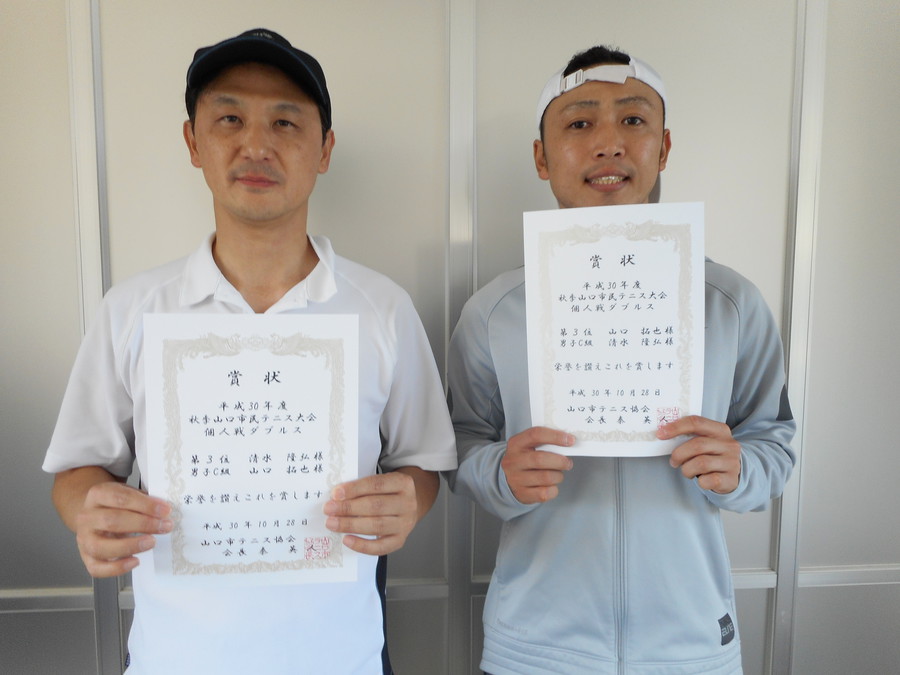 賞状
平成30年度
秋季山口市民テニス大会
個人戦ダブルス
第3位 清水 隆弘様
男子C級 山口 拓也様
栄誉を讃えこれを賞します
平成30年10月28日
山口市テニス協会
会長 秦 英
賞状
平成30年度
秋季山口市民テニス大会
個人戦ダブルス
第3位 山口 拓也様
男子C級 清水 隆弘様
栄誉を讃えこれを賞します
平成30年10月28日
山口市テニス協会
会長 秦 英